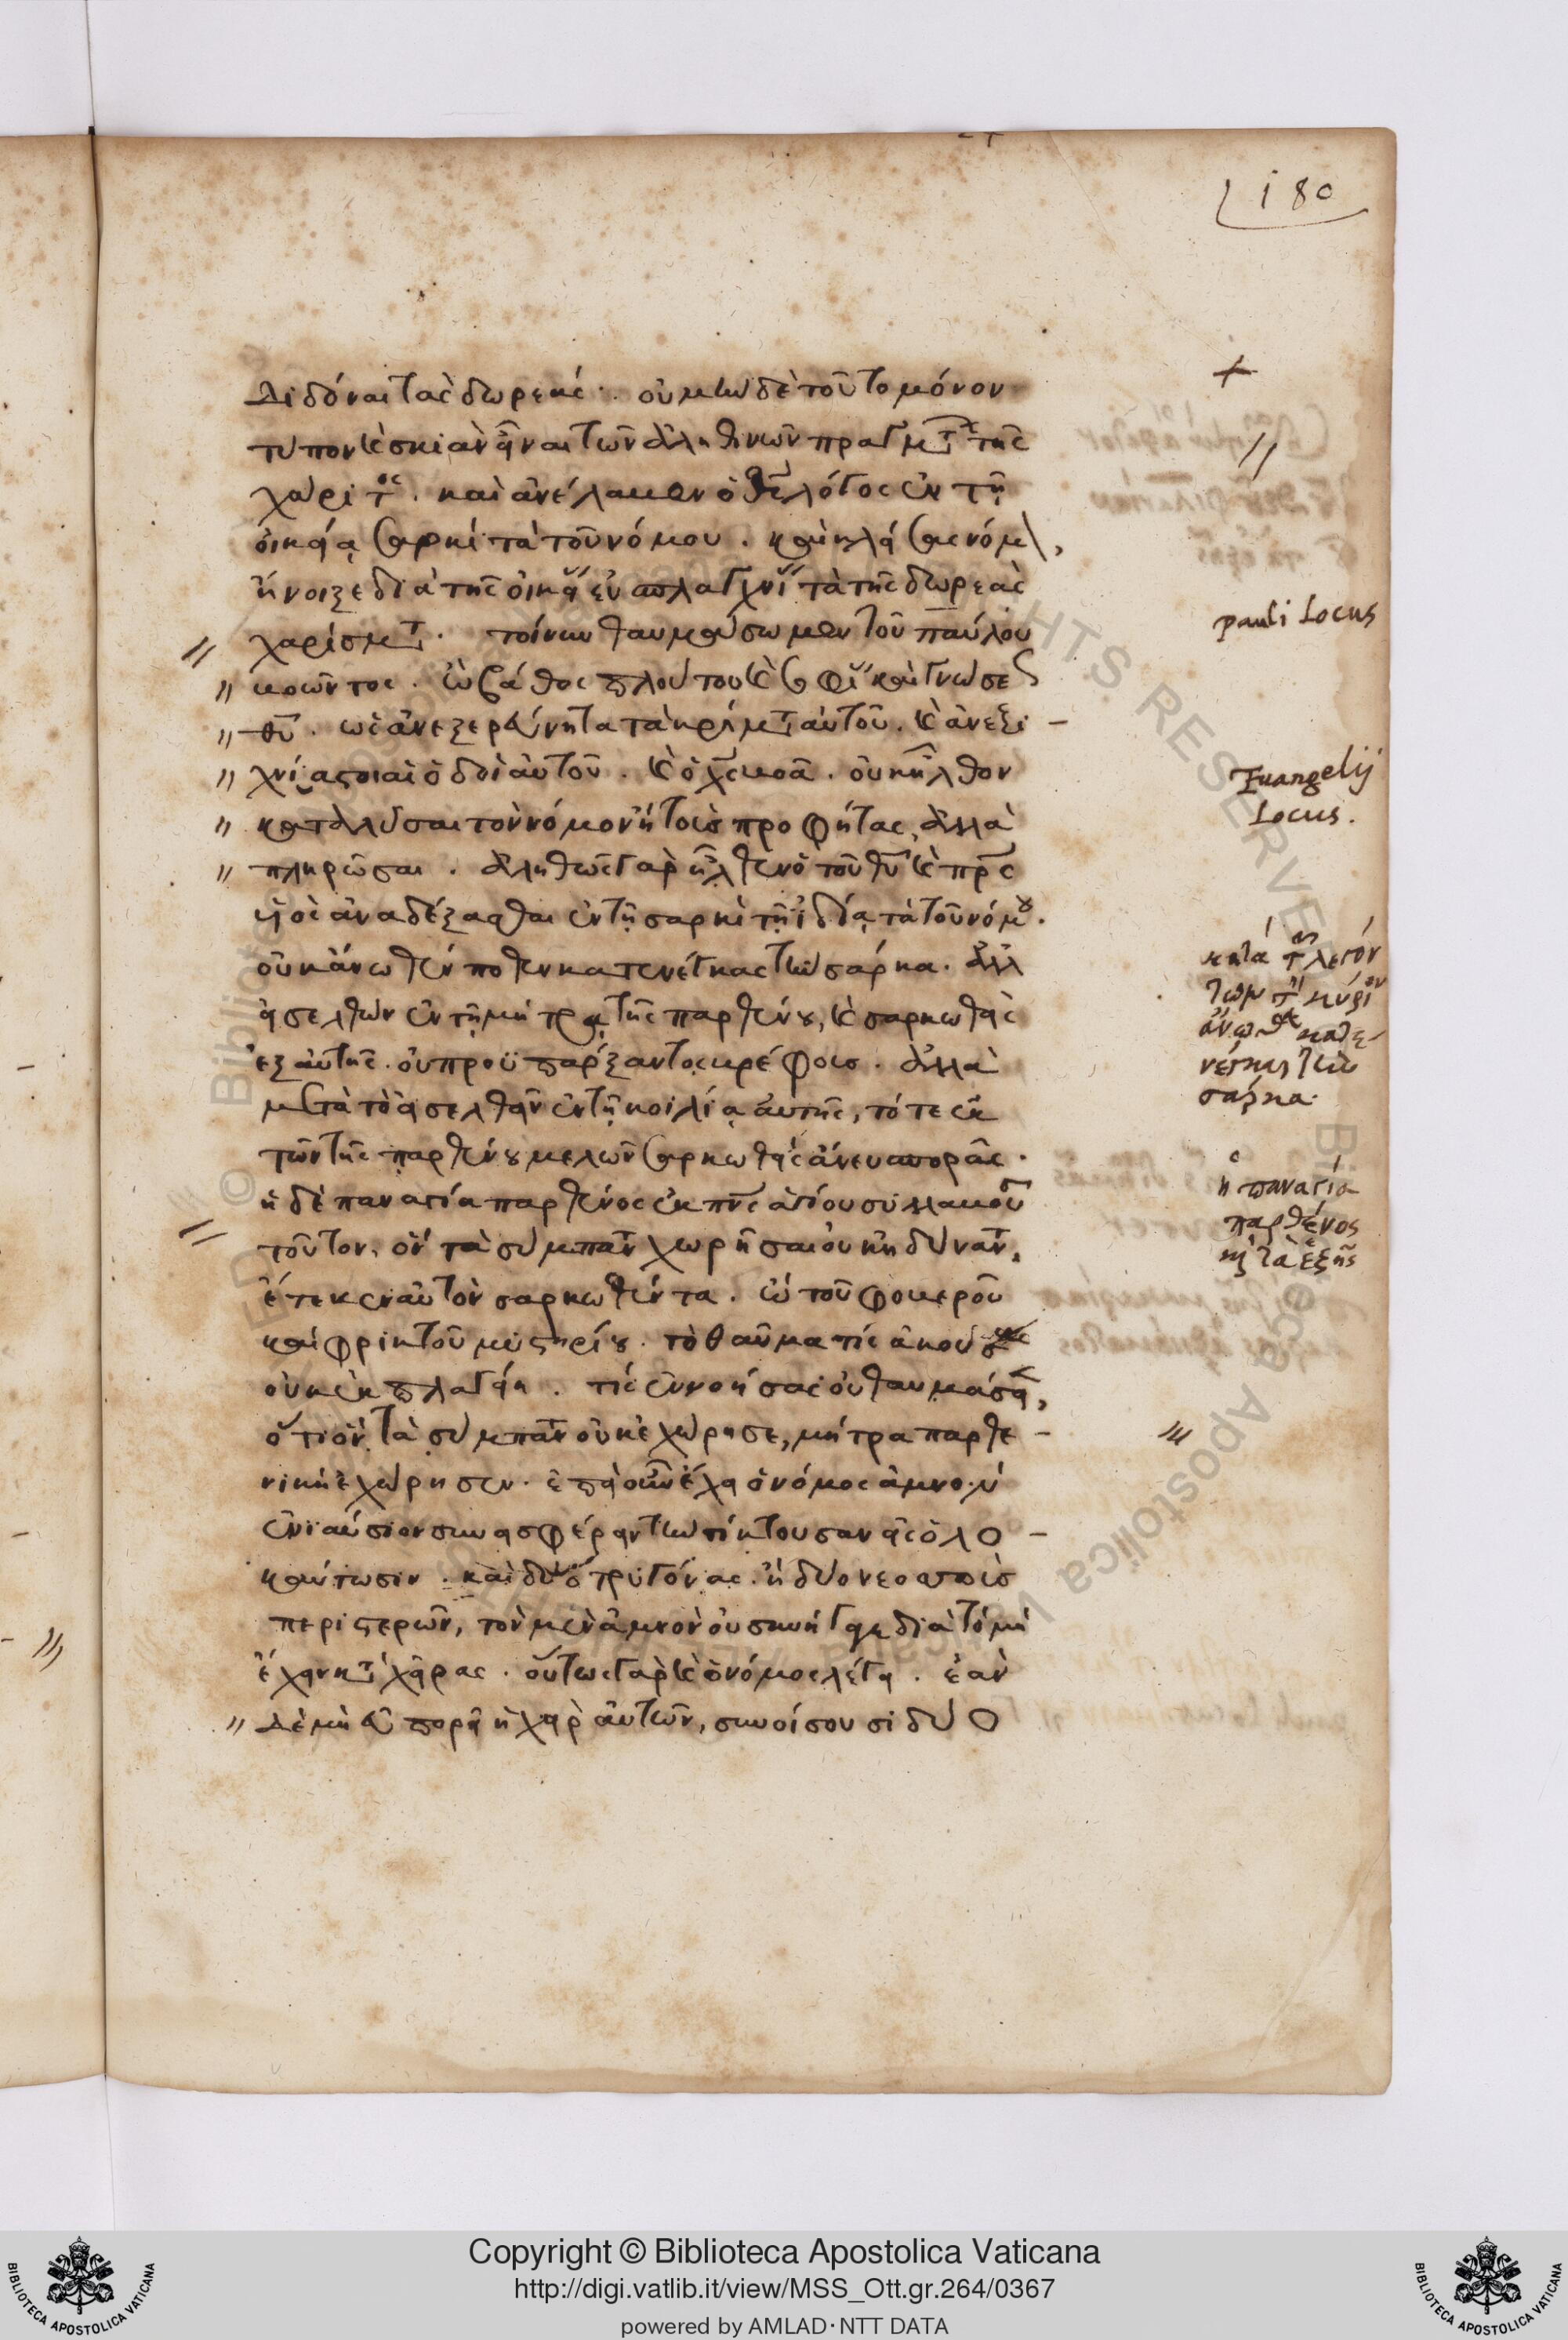 180
διδόναι τὰς δωρεάς. οὐ μὴν δὲ τοῦτο μόνον
τύπον καὶ σκιὰν εἶναι τῶν ἀληθινῶν πραγμάτων τῆς
χάριτος. καὶ ἀνέλαβεν ὁ θεὸς λόγος ἐν τῇ
οἰκείᾳ σαρκὶ τὰ τοῦ νόμου. καὶ κλείσας νόμον,
ἤνοιξε διὰ τῆς οἰκείας εὐσπλαγχνίας τὰ τῆς δωρεᾶς
χαρίσματα. τοίνυν θαυμάσωμεν τοῦ παύλου
βοῶντος. ὢ βάθος πλούτου καὶ σοφίας καὶ γνώσεως
θυ. ὡς ἀνεξερεύνητα τὰ κρίματα αὐτοῦ. καὶ ἀνεξι-
χνίαστοι αἱ ὁδοὶ αὐτοῦ. καὶ ὁ χς βοᾶ. οὐκ ἦλθον
καταλῦσαι τὸν νόμον ἢ τοὺς προφήτας, ἀλλὰ
πληρῶσαι. ἀληθῶς γὰρ ἦλθεν ὁ τοῦ θυ καὶ πρς
υἱὸς ἀναδέξασθαι ἐν τῇ σαρκὶ τῇ ἰδίᾳ τὰ τοῦ νόμου.
οὐκ ἄνωθέν ποθεν κατενέγκας τὴν σάρκα. ἀλλ
εἰσελθὼν ἐν τῇ μήτρᾳ τῆς παρθένου, καὶ σαρκωθεὶς
ἐξ αὐτῆς. οὐ προϋπάρξαντος βρέφους. ἀλλὰ
μετὰ τὸ εἰσελθεῖν ἐν τῇ κοιλίᾳ αὐτῆς, τότε ἐκ
τῶν τῆς παρθένου μελῶν σαρκωθεὶς ἄνευ σπορᾶς.
ἡ δὲ παναγία παρθένος ἐκ πνς ἁγίου συλλαβοῦσα
τοῦτον, ὃν τὰ σύμπαντα χωρῆσαι οὐκ ἠδύναντο,
ἔτεκεν αὐτὸν σαρκωθέντα. ὢ τοῦ φοβεροῦ
καὶ φρικτοῦ μυστηρίου. τὸ θαῦμα τίς ἀκούσας
οὐκ ἐκπλαγείη. τίς ἐννοήσας οὐ θαυμάσει,
ὅτι ὃν τὰ σύμπαντα οὐκ ἐχώρησε, μήτρα παρθε-
νικὴ ἐχώρησεν. ἐπεὶ οὖν ἔλεγεν ὁ νόμος ἀμνὸν
ἐνιαύσιον συνεισφέρειν τὴν τίκτουσαν εἰς ὁλο-
καύτωσιν. καὶ δύο τρυγόνας. ἢ δύο νεοσσοὺς
περιστερῶν, τὸν μὲν ἀμνὸν οὐ συνήγαγε διὰ τὸ μὴ
ἔχειν κατὰ χεῖρας. οὕτως γὰρ καὶ ὁ νόμος λέγει. ἐὰν
δὲ μὴ εὐπορῇ ἡ χεὶρ αὐτῶν, συνοίσουσι δύο
pauli Locus
Euangelij
Locus.
κατὰ τῶν λεγόν
των τὸν κύριον
ἄνωθεν κατε-
νέγκαι τὴν
σάρκα.
ἡ παναγία
παρθένος
καὶ τὰ ἑξῆς
Copyright © Biblioteca Apostolica Vaticana
http://digi.vatlib.it/view/MSS_Ott.gr.264/0367
powered by AMLAD·NTT DATA